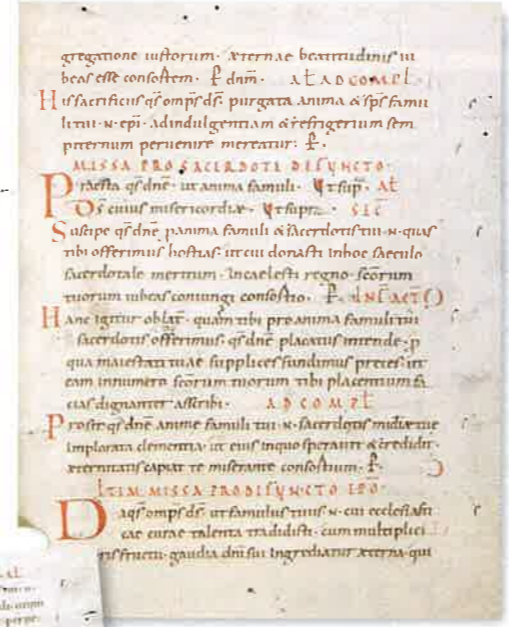 gregatione iustorum· æternae beatitudinis iu
beas esse consortem· P dnm̄· AT AD COMPL̄
His sacrificiis q̄s omp̄s d̄s· purgata anima & sp̄s famu
li tui· N· ep̄i· ad indulgentiam & refrigerium sem
piternum peruenire mereatur· P·
MISSA PRO SACERDOTE DEFUNCTO·
Praesta q̄s dn̄e· ut anima famuli· ut sup̄· AT
D̄s cuius misericordiæ· ut supra· SEC̄
Suscipe q̄s dn̄e p anima famuli & sacerdotis tui· N· quas
tibi offerimus hostias· ut cui donasti in hoc saeculo
sacerdotale meritum· In caelesti regno sc̄orum
tuorum iubeas coniungi consortio· P·
Hanc igitur oblat̄· quam tibi pro anima famuli tui
sacerdotis offerimus· q̄s dn̄e placatus intende· p
qua maiestati tuae supplices fundimus preces· ut
eam in numero sc̄orum tuorum tibi placentium fa
cias dignanter ascribi· AD COMPL̄
Prosit q̄s dn̄e animae famuli tui· N· sacerdotis
implorata clementia· ut eius in quo sperauit & credidit·
æternitatis capiat te miserante consortium· P·
ITEM MISSA PRO DEFUNCTO EPO·
Da q̄s omp̄s d̄s· ut famulus tuus· N· cui ecclesiasti
cae curae talenta tradidisti· cum multiplici
tis fructu· gaudia dn̄i sui ingrediatur æterna· qui